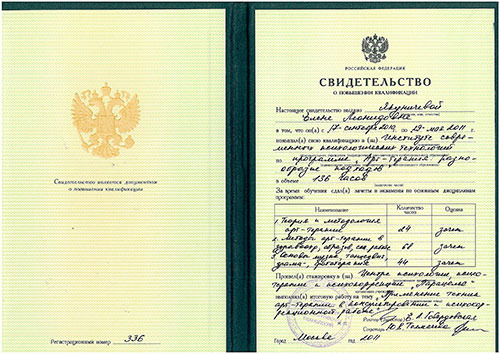 Свидетельство является документом
о повышении квалификации
Регистрационный номер 336
РОССИЙСКАЯ ФЕДЕРАЦИЯ
СВИДЕТЕЛЬСТВО
О ПОВЫШЕНИИ КВАЛИФИКАЦИИ
Настоящее свидетельство выдано Якуничевой
Елене Леонидовне
в том, что он(а) с 17 сентября 2010 по 29 мая 2011
повысил(а) свою квалификацию в (на) Институте совре-
менного психологических технологий
по программе „Арт-терапия разно-
образие подходов
в объеме 136 часов
За время обучения сдал(а) зачеты и экзамены по основным дисциплинам
программы:
Наименование Количество часов Оценка
1. Теория и методология
арт-терапии 24 зачет
2. Методы арт-терапии в
здравоохр, образов, соц. работе 68 зачет
3. Основы музыки, танцедвиг,
драма-, фототерапия 44 зачет
Прошел(а) стажировку в (на) Центре психологии, психо-
терапии и психокоррекции
выполнил(а) итоговую работу на тему „Применение техник
арт-терапии в консультировании и психокор-
рекционной работе"
Секретарь
Город Москва год 2011